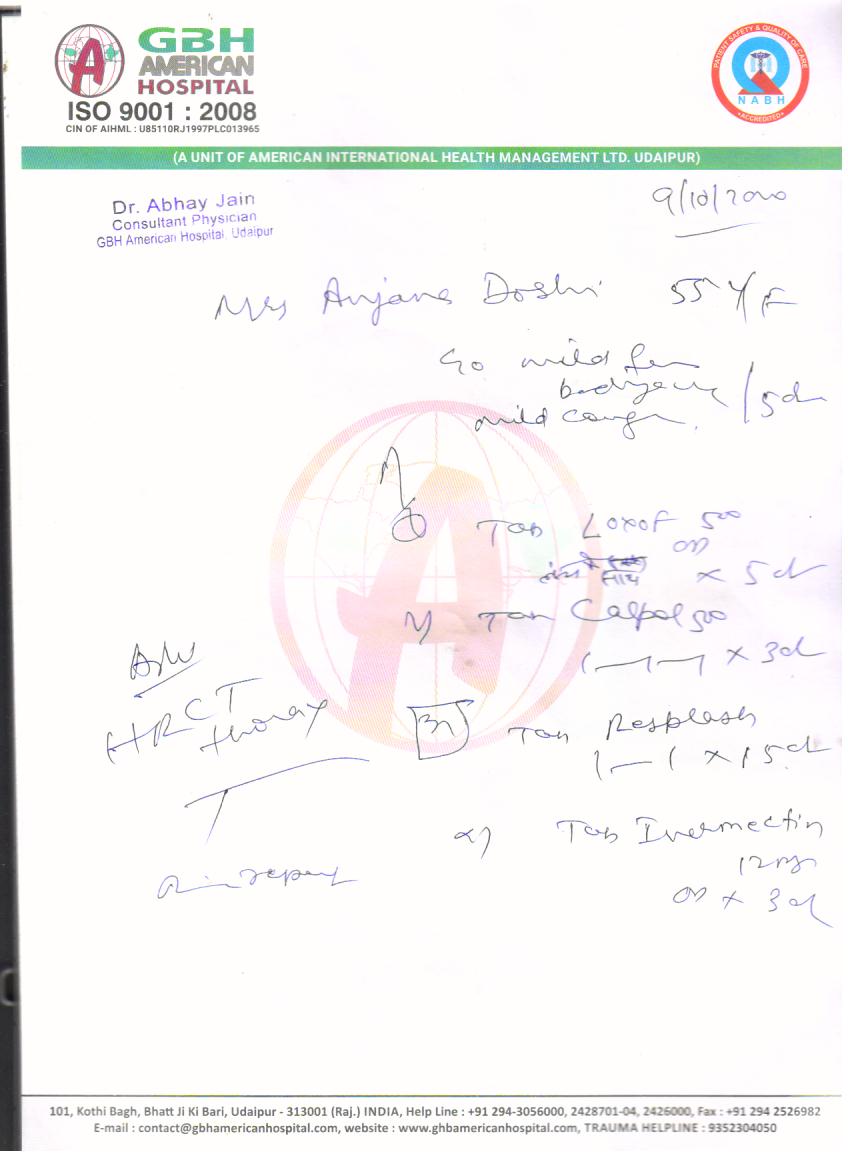 GBH
AMERICAN
HOSPITAL
ISO 9001 : 2008
CIN OF AIHML : U85110RJ1997PLC013965
PATIENT SAFETY & QUALITY OF CARE
NABH
ACCREDITED
(A UNIT OF AMERICAN INTERNATIONAL HEALTH MANAGEMENT LTD. UDAIPUR)
Dr. Abhay Jain
Consultant Physician
GBH American Hospital, Udaipur
9/10/2020
Mrs Anjana Doshi 55 Y/F
mild
mild cough
/5d
Tab Loxof 500
OD
x 5d
Tab Calpol 500
1—1—1 x 3d
Adv
HRCT
thorax
3) Tab Resplash
1—1 x 15d
4) Tab Ivermectin
12mg
OD x 3d
101, Kothi Bagh, Bhatt Ji Ki Bari, Udaipur - 313001 (Raj.) INDIA, Help Line : +91 294-3056000, 2428701-04, 2426000, Fax : +91 294 2526982
E-mail : contact@gbhamericanhospital.com, website : www.ghbamericanhospital.com, TRAUMA HELPLINE : 9352304050